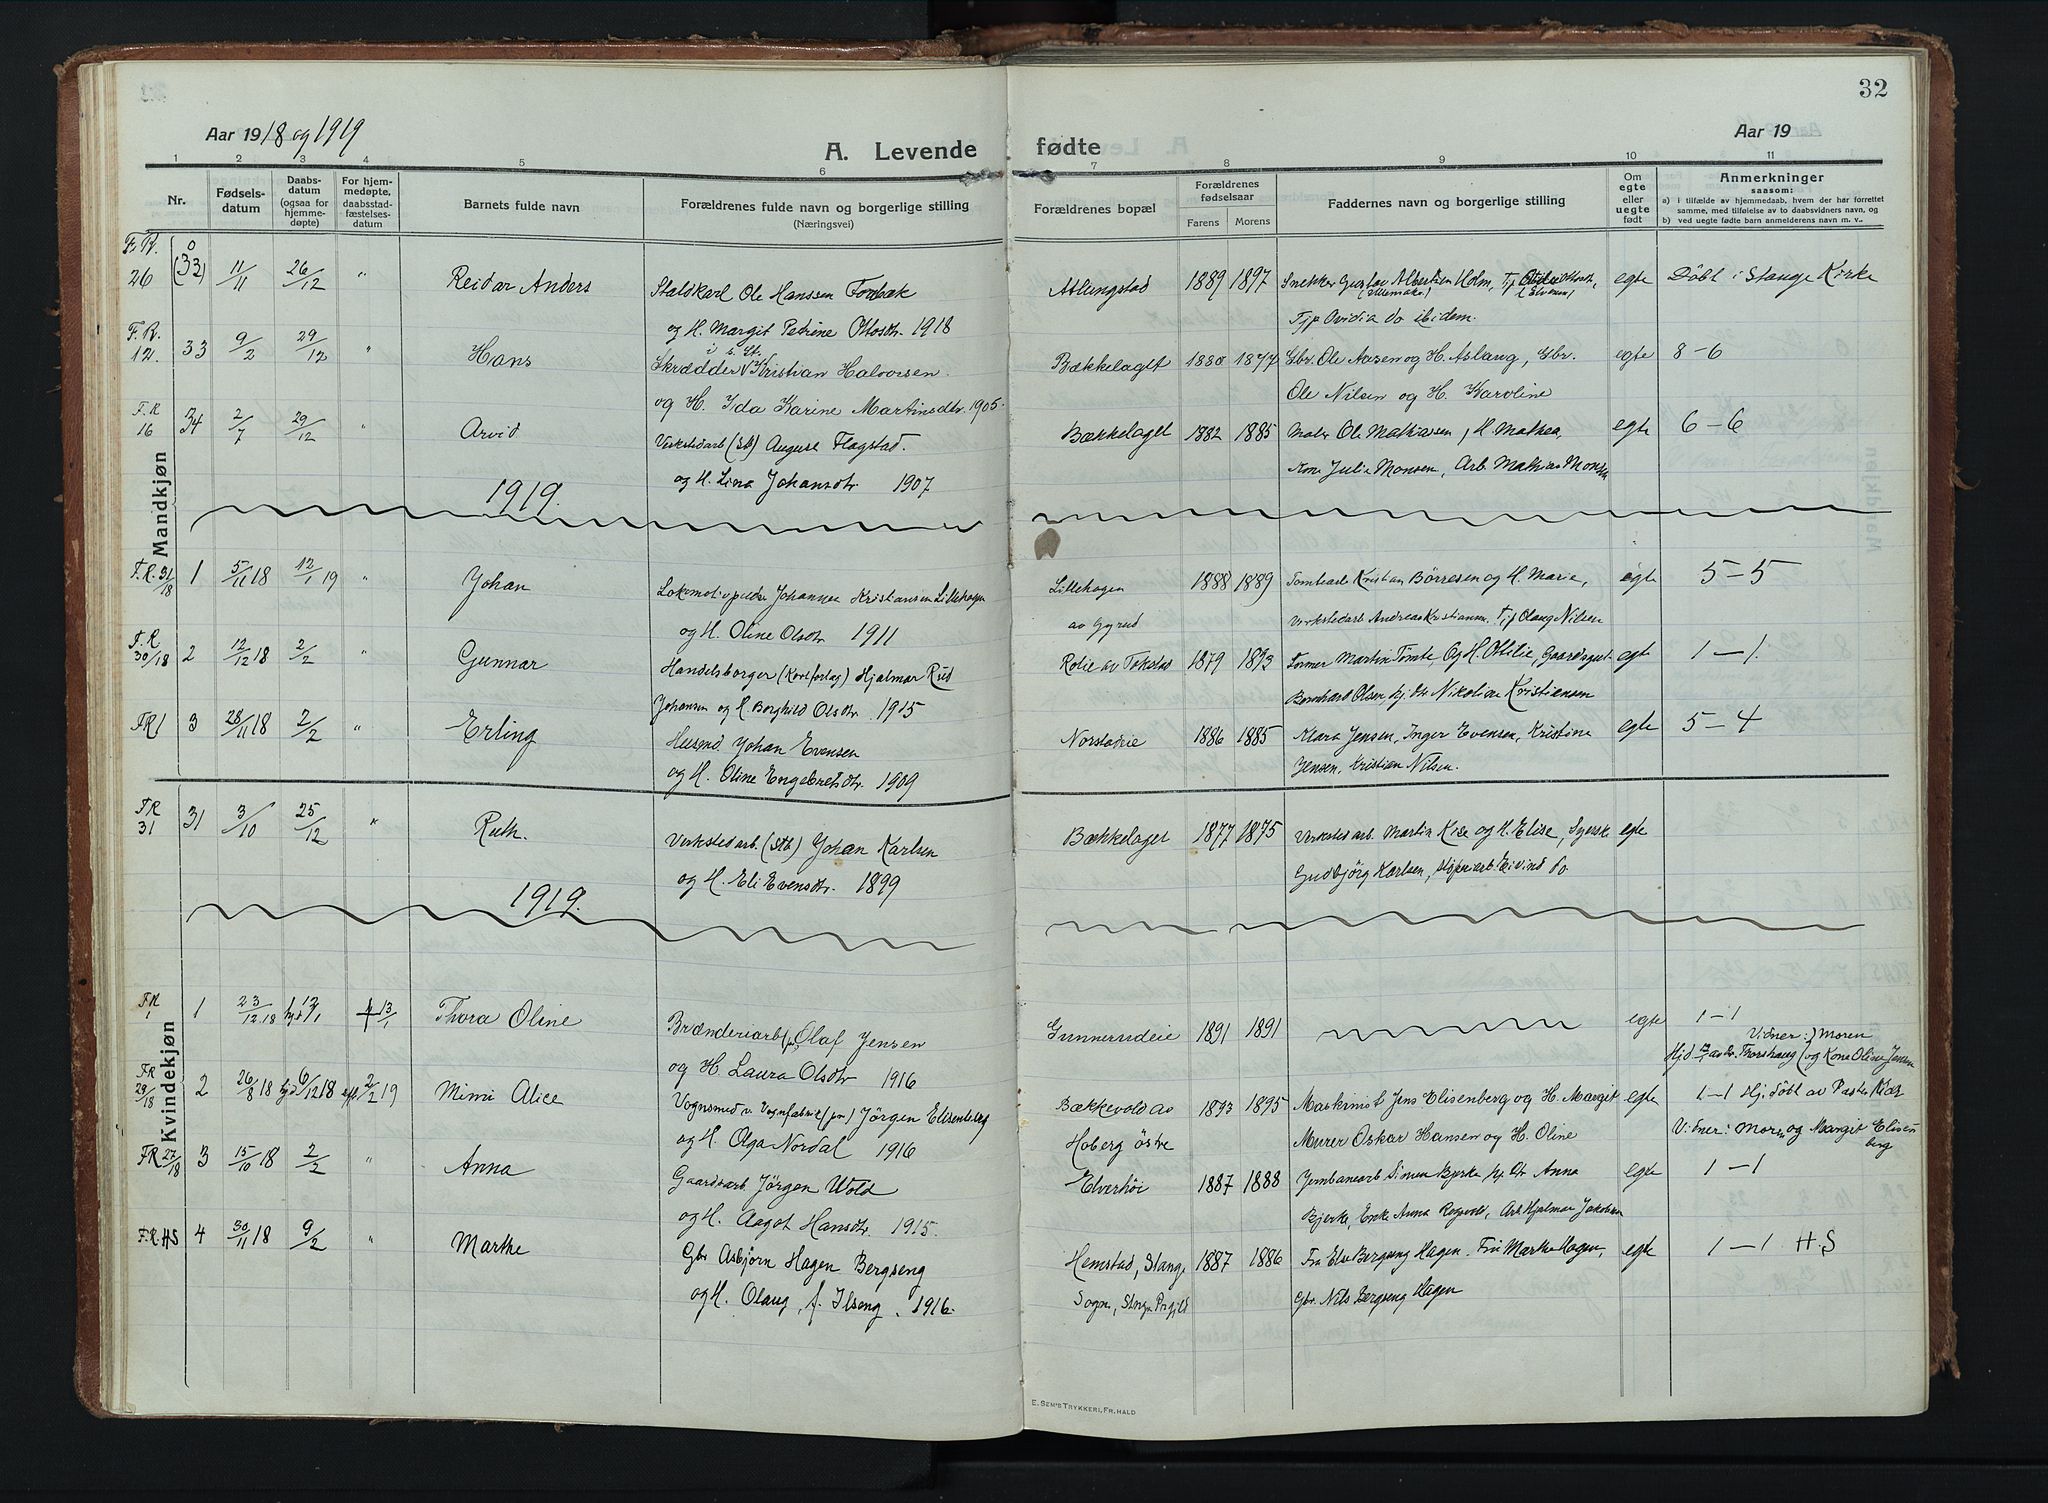 32
Aar 1918 og 1919
A. Levende fødte
Aar 19
1 2 3 4 5 6 7 8 9 10 11
Nr.
Fødsels-
datum
Daabs-
datum
(ogsaa for
hjemme-
døpte)
For hjem-
medøpte,
daabsstad-
fæstelses-
datum
Barnets fulde navn
Forældrenes fulde navn og borgerlige stilling
(Næringsvei)
Forældrenes bopæl
Forældrenes
fødselsaar
Farens Morens
Faddernes navn og borgerlige stilling
Om
egte
eller
uegte
født
Anmerkninger
saasom:
a) i tilfælde av hjemmedaab, hvem der har forrettet
samme, med tilføielse av to daabsvidners navn, og
b) ved uegte fødte barn anmelderens navn m. v.
Mandkjøn
F. R. 26 (32) 11/11 26/12 " Reidar Anders Staldkarl Ole Hanssen Fonbæk Atlungstad 1889 1897 Snekker Gustav Albertsen Holm, egte Döbt i Stange Kirke
og H. Margit Petrine Ottosdtr. 1918 Tjp Ovidia do ibidem.
F. R. 12. 33 9/2 29/12 " Hans Skrædder Kristian Halvorsen Bækkelaget 1880 1877 Gbr. Ole Aasen og H. Aslaug, Gbr. egte 8-6
og H. Ida Karine Martinsdtr. 1905. Ole Nilsen og H. Karoline
F. R 16 34 2/7 29/12 " Arvid Verkstedarb (St) August Flagstad. Bækkelaget 1882 1885 Maler Ole Mathiassen, H. Mathea, egte 6-6
og H. Lina Johansdtr 1907 Kone Julie Monsen, Arb. Mathias Monsen
1919.
F. R. 31/18 1 5/11 18 12/1 19 " Johan Johannes Kristiansen Lillehagen Lillehagen 1888 1889 Tomtearb Kristian Börresen og H. Marie, egte 5-5
og H. Oline Olsdtr. 1911 av Gyrud Verkstedarb Andreas Kristiansen. Tjp Olaug Nilsen
F. R 30/18 2 12/12 18 2/2 " Gunnar Handelsborger (Kortforlag) Hjalmar Rud Rolie av Tokstad 1879 1893 Former Martin Tomte, Og H. Otilie, Gaardsgut egte 1-1.
Johansen og H Borghild Olsdtr. 1915 Bernhard Olsen hj. dtr Nikoline Kristiansen
FR1 3 28/11 18 2/2 " Erling Husmd Johan Evensen Norstadeie 1886 1885 Klara Jensen, Inger Evensen, Kristine egte 5-4
og H. Oline Engebretsdtr. 1909 Jensen, Kristian Nilsen.
Kvindekjøn
FR 31 31 3/10 25/12 " Ruth. Verkstedarb. (Stb) Johan Karlsen Bækkelaget 1877 1875 Verkstedarb Martin Kise og H. Elise, Syersk egte
og H. Eli Evensdtr. 1899 Gudbjörg Karlsen, Eivind do.
1919.
FR 1 1 23/12.18 hjd 12/1 † 13/1 Thora Oline Brænderiarb Olaf Jensen Gunnerudeie 1891 1891 egte 1-1
og H. Laura Olsdtr 1916 Vidner: Moren
Thorshaug (og Kone Oline Jensen
FR 29/18 2 26/8 18 hjd 6/12 18 2/2 19 Mimi Alice Vognsmed v. Vognfabrik Jörgen Elisenberg Bækkevold av 1893 1895 Maskinist Jens Elisenberg og H. Margit egte 1-1 Hj. döbt av Pastor Kiær
og H. Olga Nordal 1916 Hoberg östre Murer Oskar Hansen og H. Oline Vidner: Moren og Margit Elisen
berg
FR 27/18 3 15/10 18 2/2 " Anna Gaardsarb Jörgen Wold Elverhöi 1887 1888 Jernbanearb Simen Bjerke hj. dtr Anna egte 1-1
og H. Aagot Hansdtr. 1915. Bjerke, Enke Anna Rogvold, Arb Hjalmar Jakobsen
F.R. HS 4 30/11 18 9/2 " Marthe Gbr Asbjörn Hagen Bergseng Hemstad, Stange 1887 1886 Fru Elv Bergseng Hagen. Fru Marthe Hagen, egte 1-1 H.S
og H. Olaug, f. Ilseng. 1916. Sogn, Gbr. Nils Bergseng Hagen
E. SEM'S TRYKKERI, FR. HALD